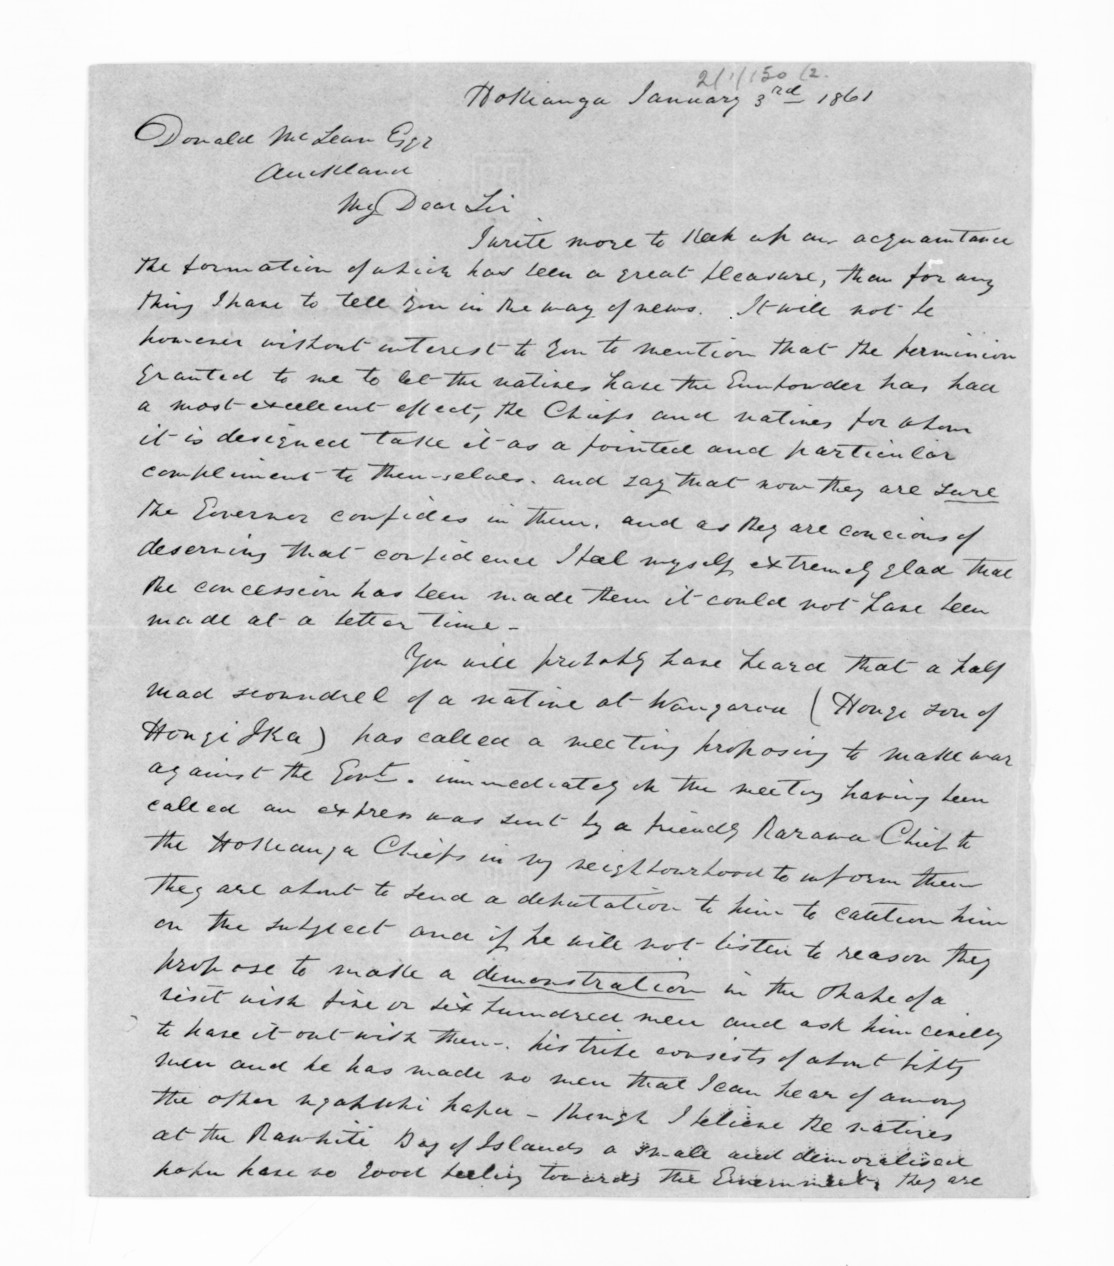 2/1/150/2.
Hokianga January 3rd 1861
Donald McLean Esqr
Auckland
My Dear Sir
I write more to keek up our acquaintance
the formation of which has been a great pleasure, than for any
thing I have to tell you in the way of news. It will not be
however without interest to you to mention that the permission
granted to me to let the natives have the Gunpowder has had
a most excellent effect, the Chiefs and natives for whom
it is designed take it as a pointed and particular
compliment to them-selves. and say that now they are sure
the Governor confides in them. and as they are concious of
deserving that confidence I feel myself extremely glad that
the concession has been made them it could not have been
made at a better time -
You will probably have heard that a half
mad scoundrell of a native at Wangaroa (Hongi son of
Hongi Ika) has called a meeting proposing to make war
against the Govt. immediately on the meeting having been
called an express was sent by a friendly Rarawa Chief to
the Hokianga Chiefs in my neighbourhood to inform them
they are about to send a deputation to him to caution him
on the subject and if he will not listen to reason they
propose to make a demonstration in the shape of a
visit with five or six hundred men and ask him civilly
to have it out with them. his tribe consists of about fifty
men and he has made no men that I can hear of among
the other ngapuhi hapu - though I believe the natives
at the Rawhiti Bay of Islands a small and demoralised
hapu have no good feeling towards the Government, they are